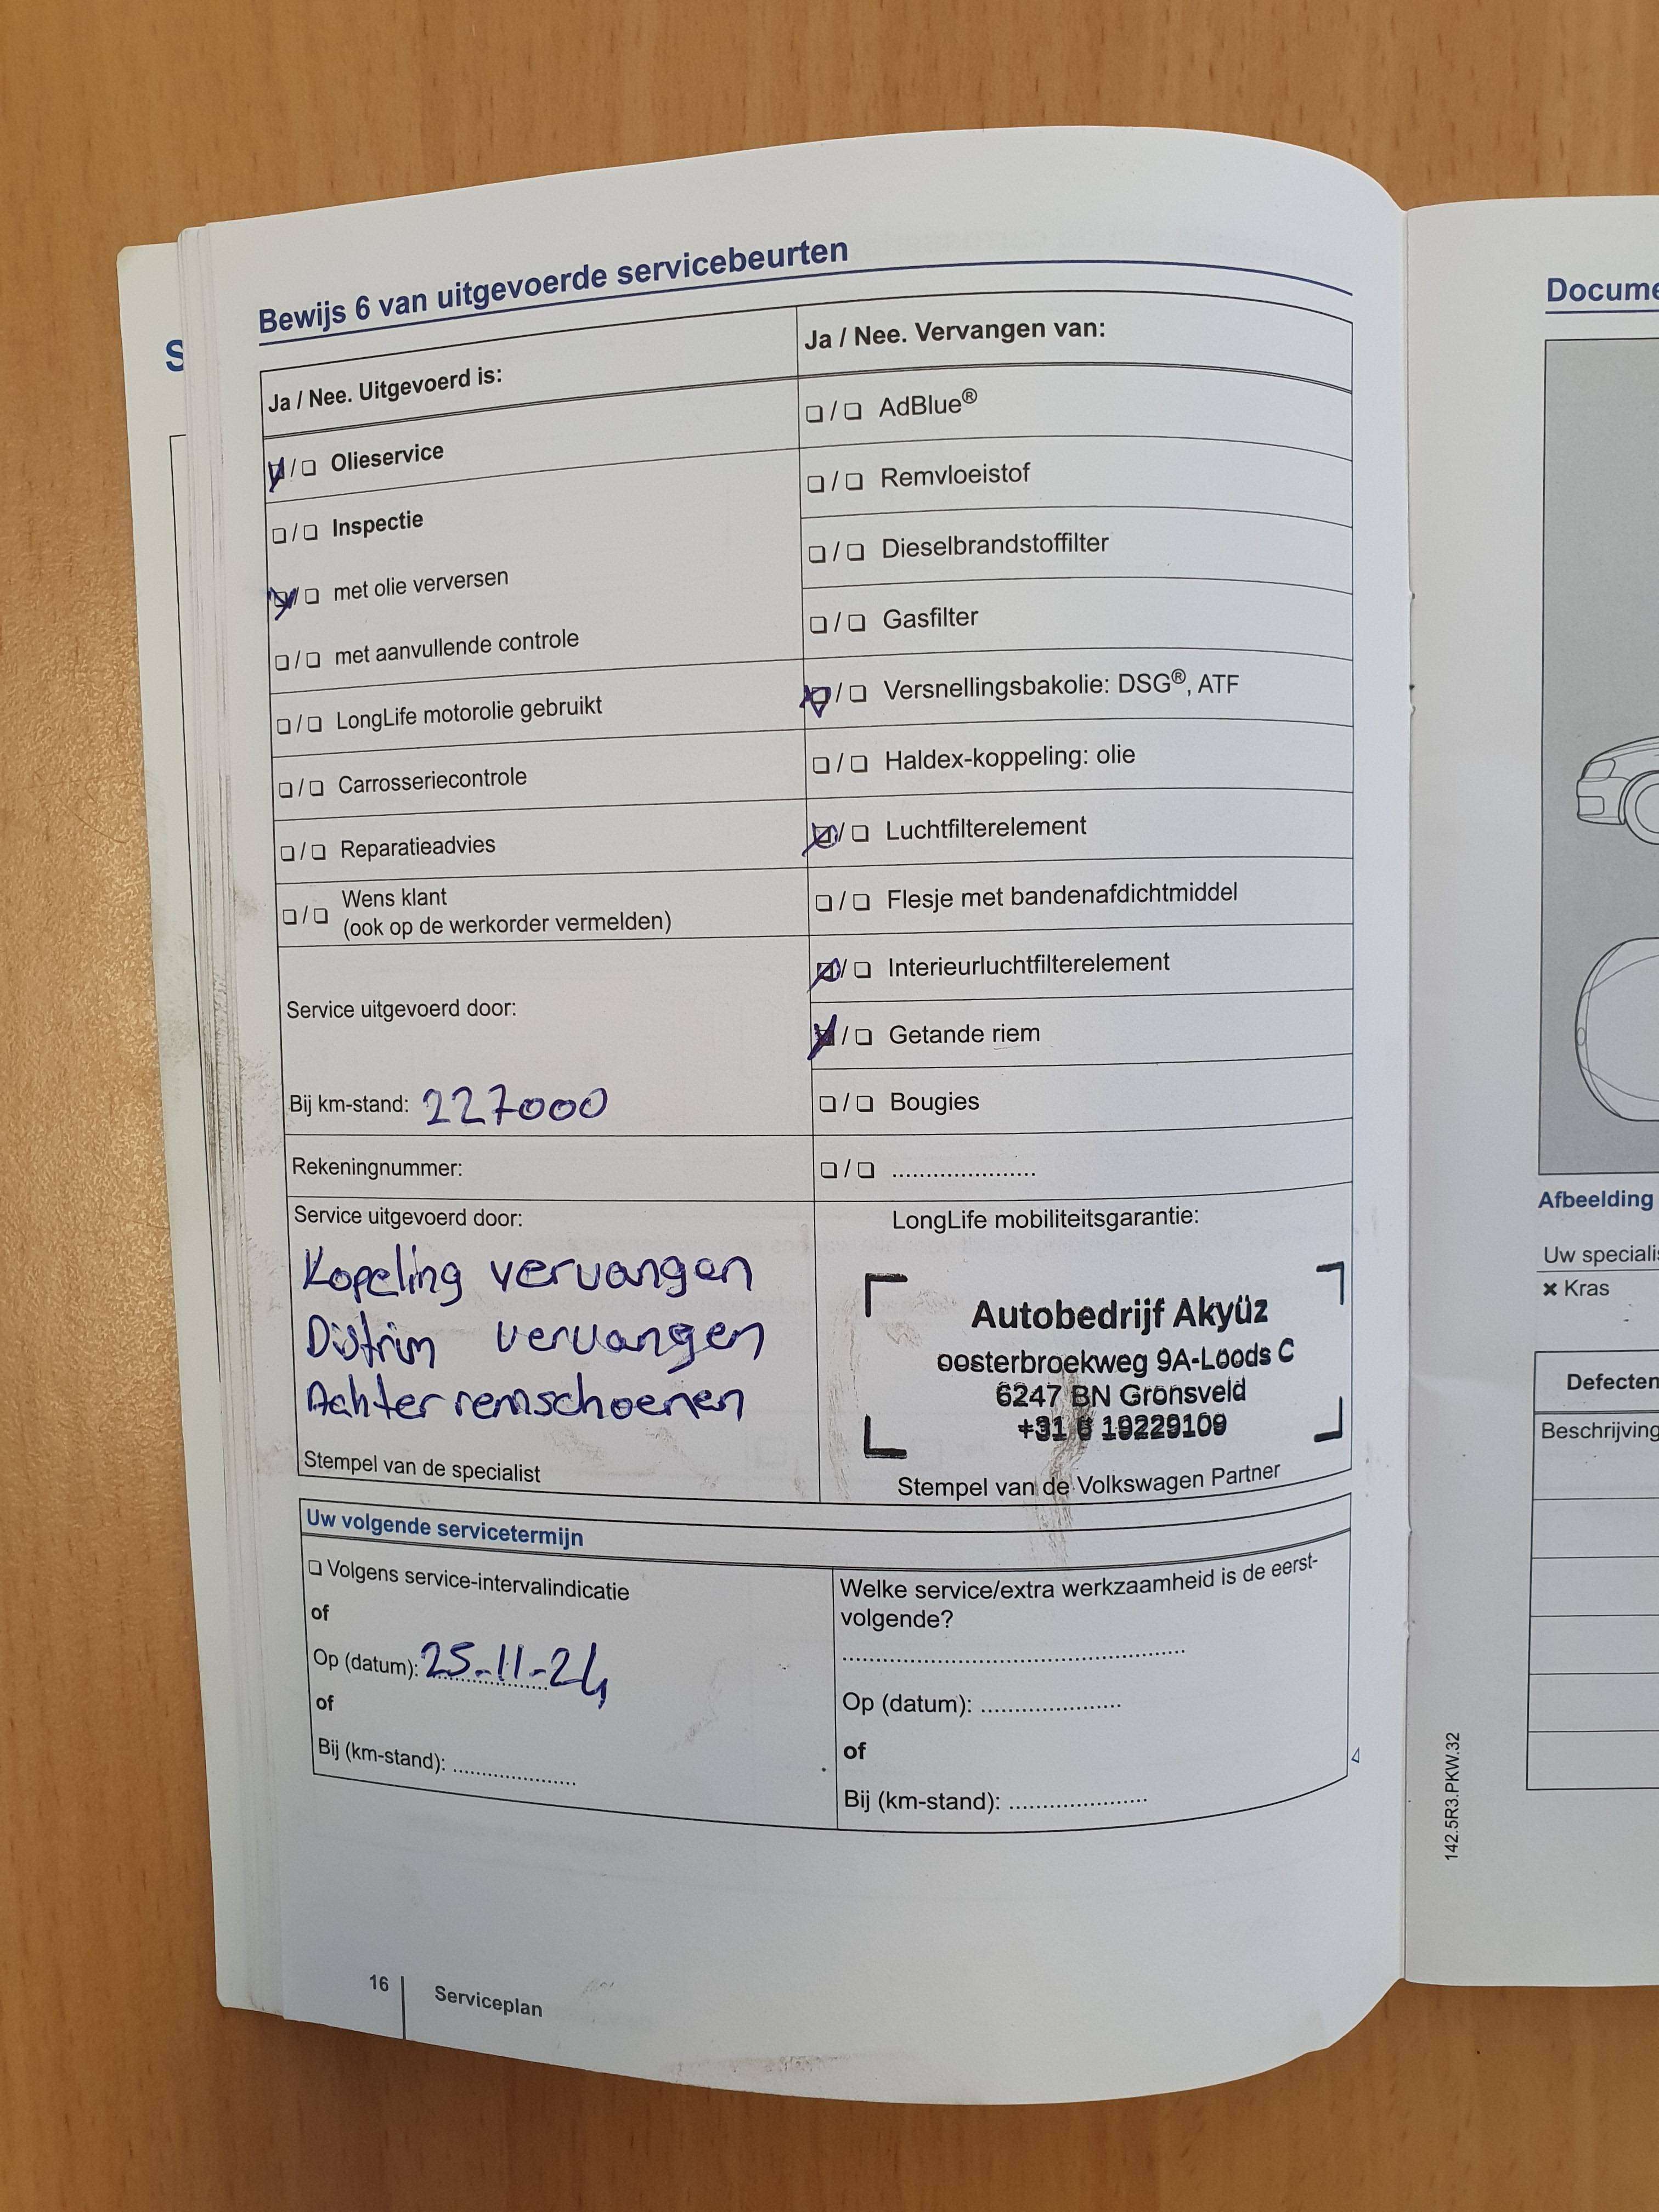 S
Bewijs 6 van uitgevoerde servicebeurten
Ja / Nee. Uitgevoerd is:
❏ / ❏ Olieservice
❏ / ❏ Inspectie
❏ / ❏ met olie verversen
❏ / ❏ met aanvullende controle
❏ / ❏ LongLife motorolie gebruikt
❏ / ❏ Carrosseriecontrole
❏ / ❏ Reparatieadvies
❏ / ❏ Wens klant
(ook op de werkorder vermelden)
Service uitgevoerd door:
Bij km-stand: 227000
Rekeningnummer:
Service uitgevoerd door:
Kopeling vervangen
Distrim vervangen
Achter remschoenen
Stempel van de specialist
Ja / Nee. Vervangen van:
❏ / ❏ AdBlue®
❏ / ❏ Remvloeistof
❏ / ❏ Dieselbrandstoffilter
❏ / ❏ Gasfilter
❏ / ❏ Versnellingsbakolie: DSG®, ATF
❏ / ❏ Haldex-koppeling: olie
❏ / ❏ Luchtfilterelement
❏ / ❏ Flesje met bandenafdichtmiddel
❏ / ❏ Interieurluchtfilterelement
❏ / ❏ Getande riem
❏ / ❏ Bougies
❏ / ❏ ......................
LongLife mobiliteitsgarantie:
Autobedrijf Akyüz
oosterbroekweg 9A-Loods C
6247 BN Gronsveld
+31 6 19229109
Stempel van de Volkswagen Partner
Uw volgende servicetermijn
❏ Volgens service-intervalindicatie
of
Op (datum): 25-11-24
of
Bij (km-stand): ...................
Welke service/extra werkzaamheid is de eerst-
volgende?
......................................................
Op (datum): ......................
of
Bij (km-stand): ......................
16
Serviceplan
Docume
Afbeelding
Uw specialis
✖ Kras
Defecten
Beschrijving
142.5R3.PKW.32